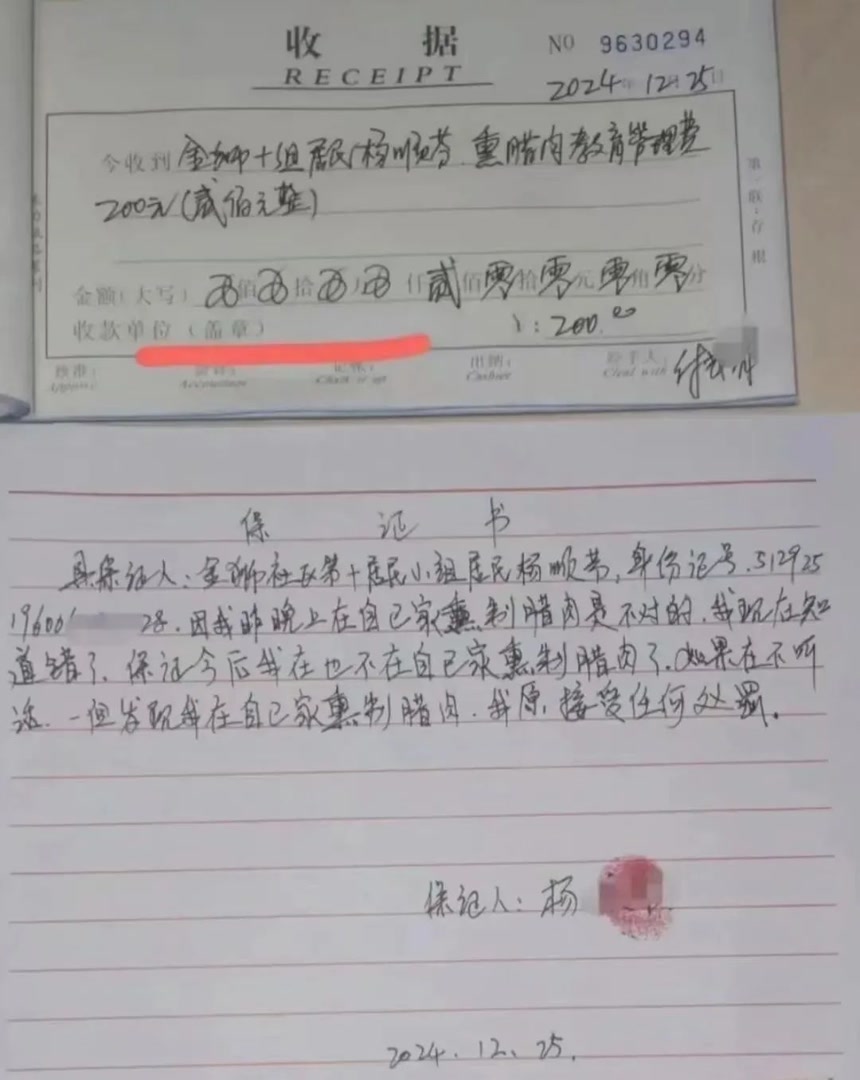 收 据
RECEIPT
NO 9630294
2024年12月25日
今收到 金狮十组居民杨顺芬.熏腊肉教育管理费
200元(贰佰元整)
金额(大写) 佰 拾 万 仟 贰佰零拾零元零角零分
收款单位(盖章) ¥:200.00
第一联:存根
核准: 会计: 记账: 出纳: 经手人:
Approve Accountany Check er up Cashier Cleal with
保 证 书
具保证人:金狮社区第十居民小组居民杨顺芬,身份证号.512925
19600 28.因我昨晚上在自己家熏制腊肉是不对的.我现在知
道错了.保证今后我在也不在自己家熏制腊肉了.如果在不听
话.一但发现我在自己家熏制腊肉.我愿接受任何处罚。
保证人:杨
2024.12.25.